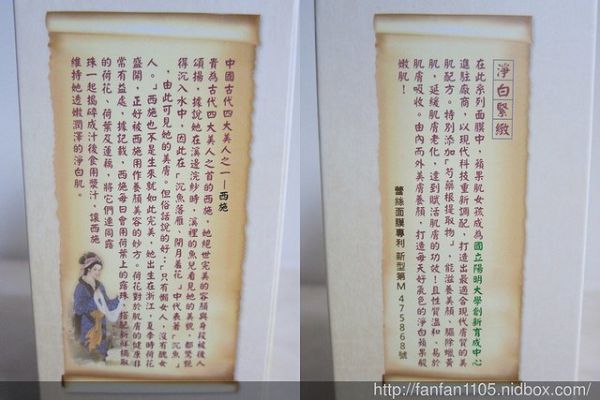 中國古代四大美人之一—西施
貴為古代四大美人之首的西施，她絕世完美的容顏與身段被後人
頌揚，據說她在溪邊浣紗時，溪裡的魚兒看見她的美貌，都驚艷
得沉入水中，因此在「沉魚落雁，閉月羞花」中代表著「沉魚」
，由此可見她的美膚。但俗話說的好：「只有懶女人，沒有醜女
人。」西施也不是生來就如此完美，她出生在浙江，夏季時荷花
盛開，正好被西施用作養顏美容的妙方。荷花對於肌膚的健康非
常有益處，據記載，西施每日會用荷葉上的露珠，搭配新鮮摘取
的荷花、荷葉及蓮藕，將它們連同露
珠一起搗碎成汁後食用漿汁，讓西施
維持她透嫩潤澤的淨白肌。
淨白緊緻
在此系列面膜中，蘋果肌女孩成為國立陽明大學創新育成中心
進駐廠商，以現代科技重新調配，打造出最適合現代膚質的美
肌配方。特別添加「芍藥根提取物」，能滋養美顏、驅除蠟黃
肌，延緩肌膚老化，達到賦活肌膚的功效！且性質溫和、易於
肌膚吸收。由內而外美膚養顏，打造每天好氣色的淨白蘋果般
嫩肌！
蕾絲面膜專利 新型第M 475868號
http://fanfan1105.nidbox.com/